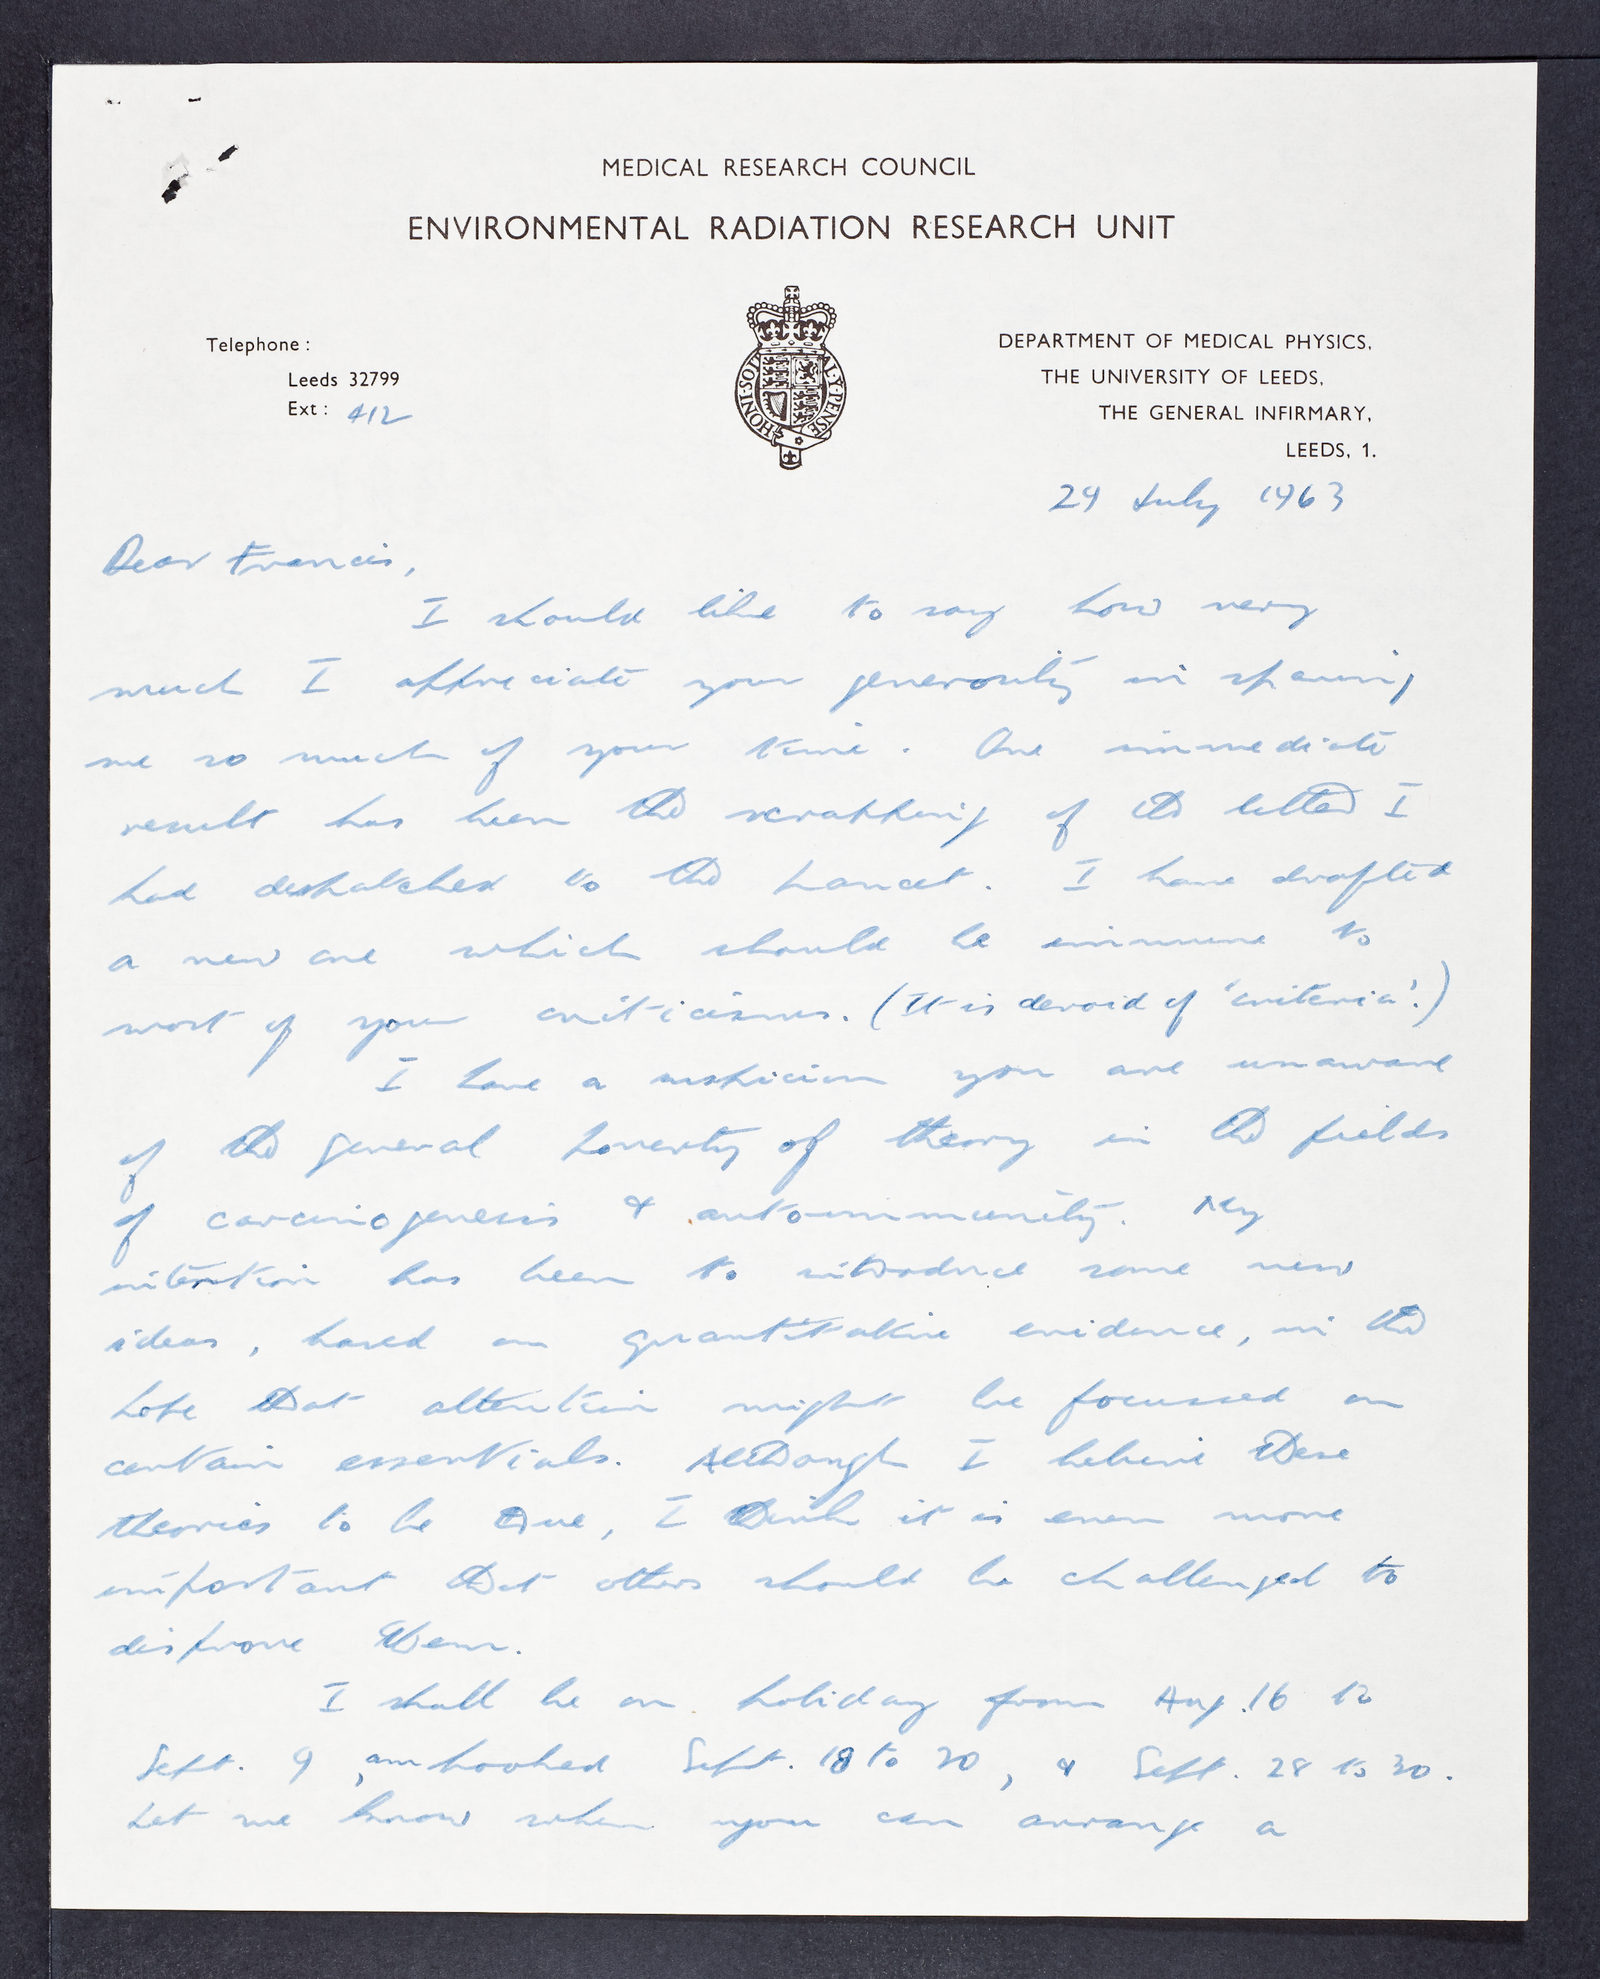 MEDICAL RESEARCH COUNCIL
ENVIRONMENTAL RADIATION RESEARCH UNIT
HONI·SOIT
AL·Y·PENSE
Telephone :
Leeds 32799
Ext : 412
DEPARTMENT OF MEDICAL PHYSICS,
THE UNIVERSITY OF LEEDS,
THE GENERAL INFIRMARY,
LEEDS, 1.
29 July 1963
Dear Francis,
I should like to say how very
much I appreciate your generosity in sparing
me so much of your time. One immediate
result has been the scrapping of the letter I
had despatched to the Lancet. I have drafted
a new one which should be immune to
most of your criticisms. (It is devoid of 'criteria'.)
I have a suspicion you are unaware
of the general poverty of theory in the fields
of carcinogenesis & auto-immunity. My
intention has been to introduce some new
ideas, based on quantitative evidence, in the
hope that attention might be focussed on
certain essentials. Although I believe these
theories to be true, I think it is even more
important that others should be challenged to
disprove them.
I shall be on holiday from Aug. 16 to
Sept. 9, am booked Sept. 18 to 20, & Sept. 28 to 30.
Let me know when you can arrange a